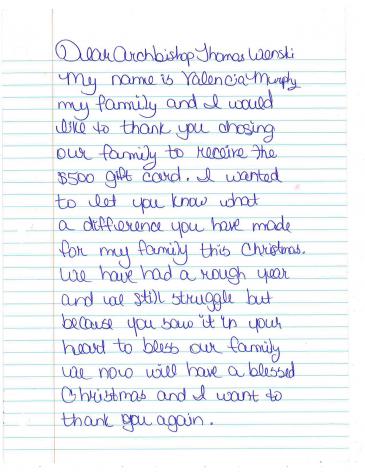 Dear Archbishop Thomas Wenski
My name is Valencia Murphy
my family and I would
like to thank you chosing
our family to receive the
$500 gift card. I wanted
to let you know what
a difference you have made
for my family this Christmas.
We have had a rough year
and we still struggle but
because you saw it in your
heart to bless our family
we now will have a blessed
Christmas and I want to
thank you again.